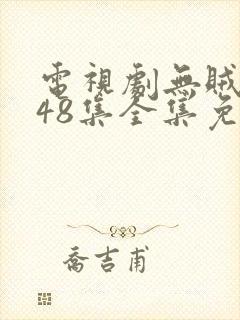 電視劇無賊
48集全集免
喬吉甫